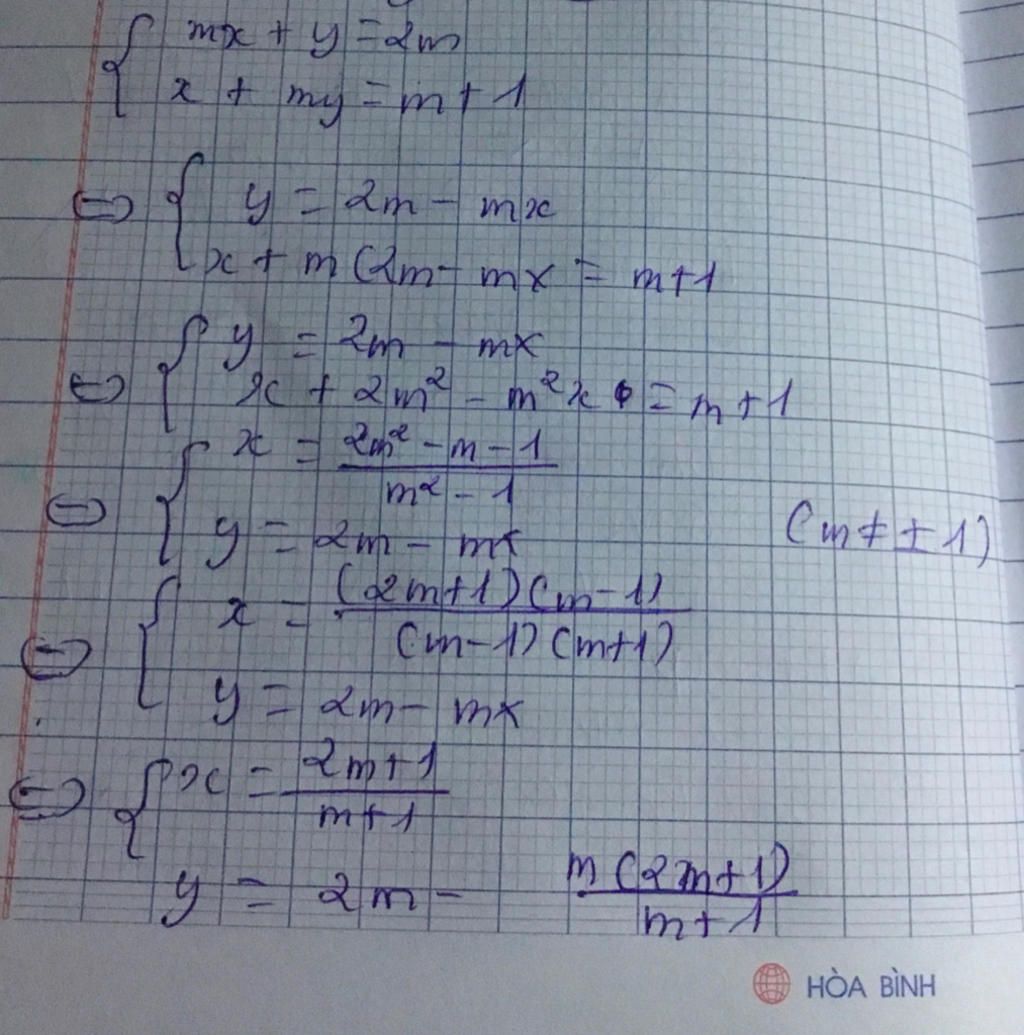 { mx + y = 2m
x + my = m + 1
⇔ { y = 2m - mx
x + m (2m - mx = m+1
⇔ { y = 2m - mx
x + 2m² - m²x = m + 1
⇔ { x = \frac{2m² - m - 1}{m² - 1}
y = 2m - mx (m ≠ ± 1)
⇔ { x = \frac{(2m+1)(m-1)}{(m-1)(m+1)}
y = 2m - mx
⇔ { x = \frac{2m+1}{m+1}
y = 2m - \frac{m(2m+1)}{m+1}
HÒA BÌNH